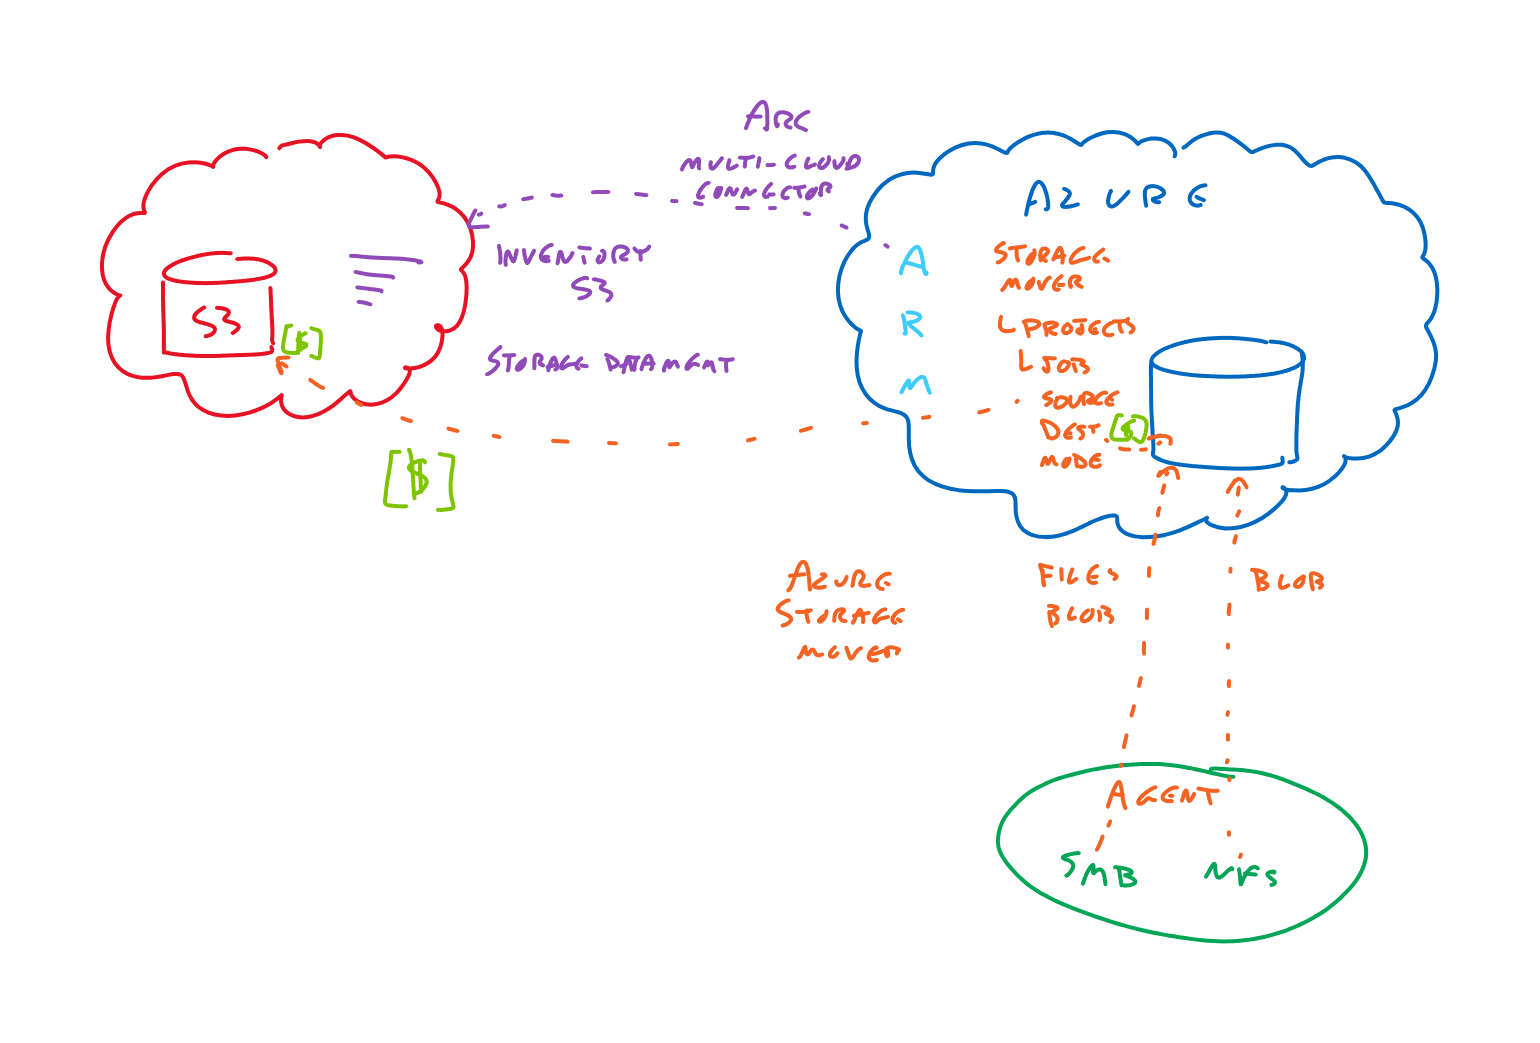 ARC
MULTI-CLOUD
CONNECTOR
AZURE
INVENTORY
S3
STORAGE DATA MGMT
S3
[$]
[$]
A
R
M
STORAGE
MOVER
L PROJECTS
L JOB
SOURCE
DEST [$]
MODE
AZURE
STORAGE
MOVER
FILES
BLOB
BLOB
AGENT
SMB
NFS